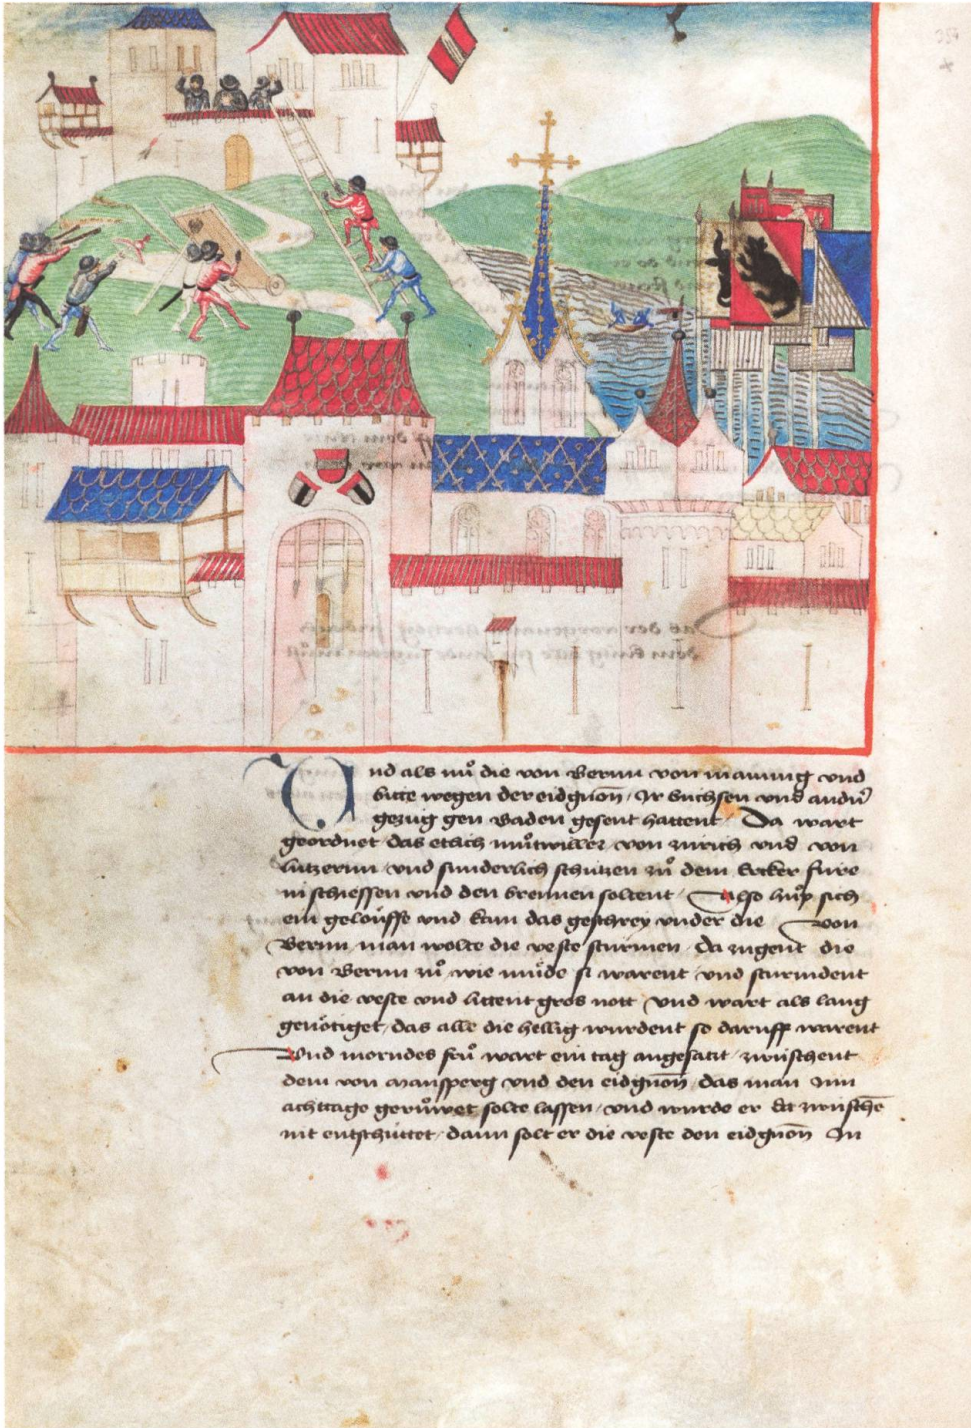 Und als nuͦ die von Bernn von manung vnd
bitte wegen der eidgnoñ / Ir buchsen vnd andrͥ
gezüg gen Baden gesent hattent / Da wart
geordnet / das etlich muͦtwiller von zurich vnd von
lutzernn / vnd sunderlich schützen zuͦ dem Ercker fúre
in schiessen vnd den brennen soltent / Also huͦp sich
ein geloͧffe vnd kam das geschrey vnder die von
Bernn / man wolte die veste stürmen / da zugent die
von Bernn zuͦ / wie muͤde si warent / vnd sturmdent
an die veste vnd littent gros nott / vnd wart als lang
genoͤtiget / das alle die hellig wurdent so daruff warent
Vnd morndes fruͦ wart ein tag angesatzt / zwúschent
dem von Mansperg vnd den eidgnoñ / das man Inn
achttage geruͦwet solte lassen / vnd wurde er da zwúschē
nit entschüttet / dann solt er die veste den eidgnoñ In